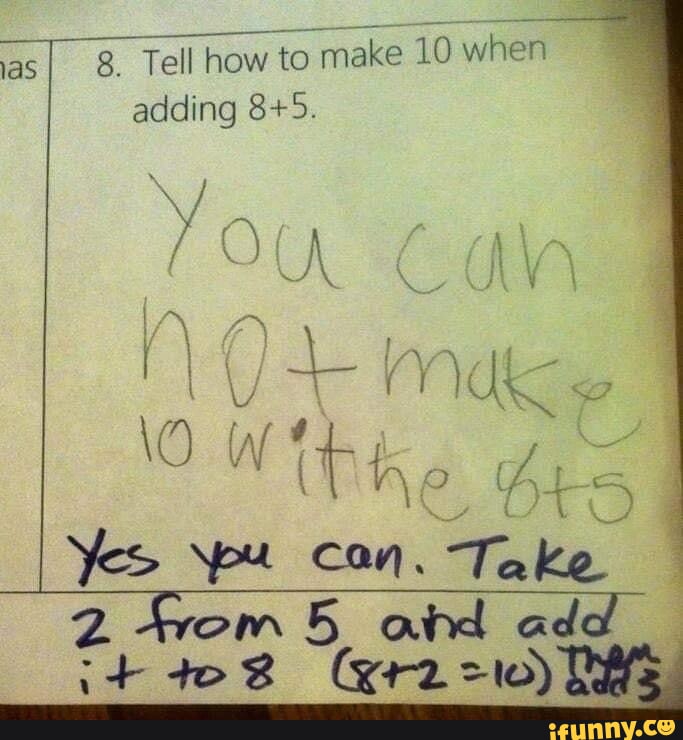 8. Tell how to make 10 when
adding 8+5.
You can
not make
10 withe 8+5
Yes you can. Take
2 from 5 and add
it to 8 (8+2=10) Then
add 3
ifunny.co